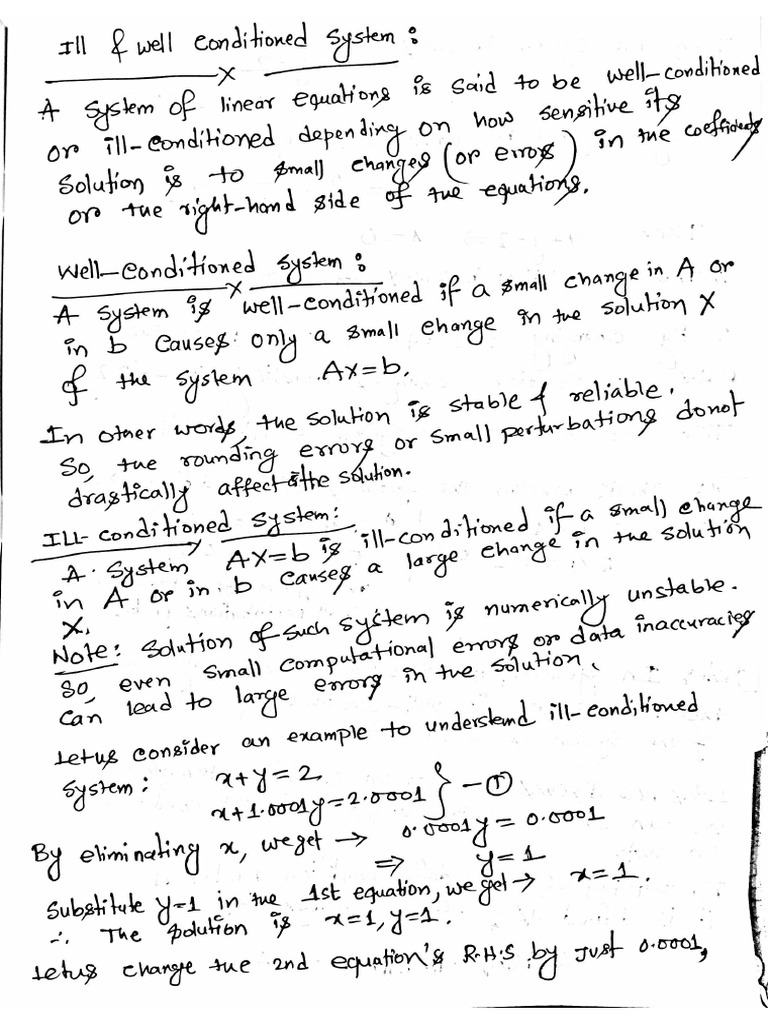 Ill & well conditioned system:
A system of linear equations is said to be well-conditioned
or ill-conditioned depending on how sensitive its
solution is to small changes (or errors) in the coefficients
or the right-hand side of the equations.
Well-conditioned system:
A system is well-conditioned if a small change in A or
in b causes only a small change in the solution X
of the system AX=b.
In other words, the solution is stable & reliable.
So, the rounding errors or small perturbations donot
drastically affect the solution.
ILL-conditioned system:
A system AX=b is ill-conditioned if a small change
in A or in b causes a large change in the solution
X.
Note: Solution of such system is numerically unstable.
So, even small computational errors or data inaccuracies
can lead to large errors in the solution.
Let us consider an example to understand ill-conditioned
system: x+y=2
x+1.0001y=2.0001 } - ①
By eliminating x, we get → 0.0001y = 0.0001
⇒ y=1
Substitute y=1 in the 1st equation, we get → x=1.
∴ The solution is x=1, y=1.
Let us change the 2nd equation's R.H.S by just 0.0001,